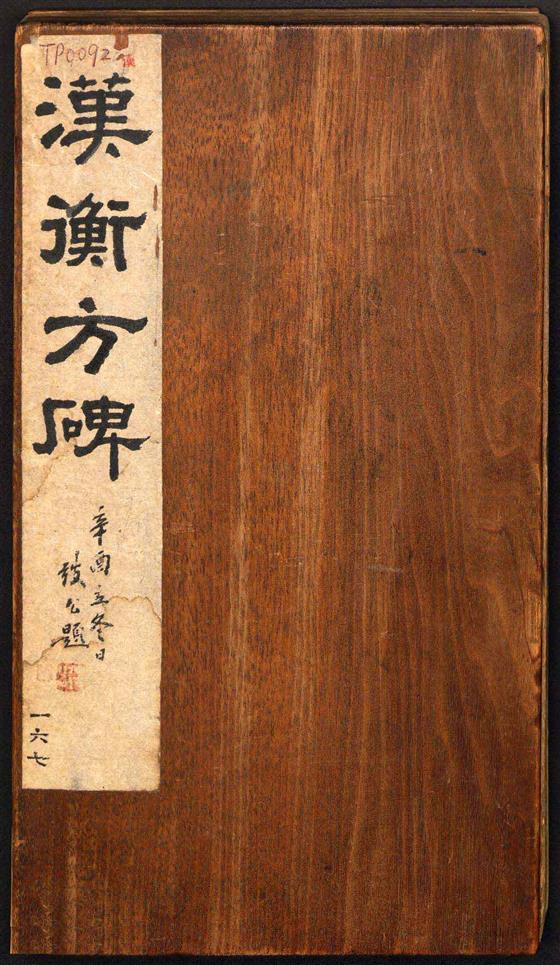 TP0092
漢衡方碑
辛酉立冬日
公題
一六七